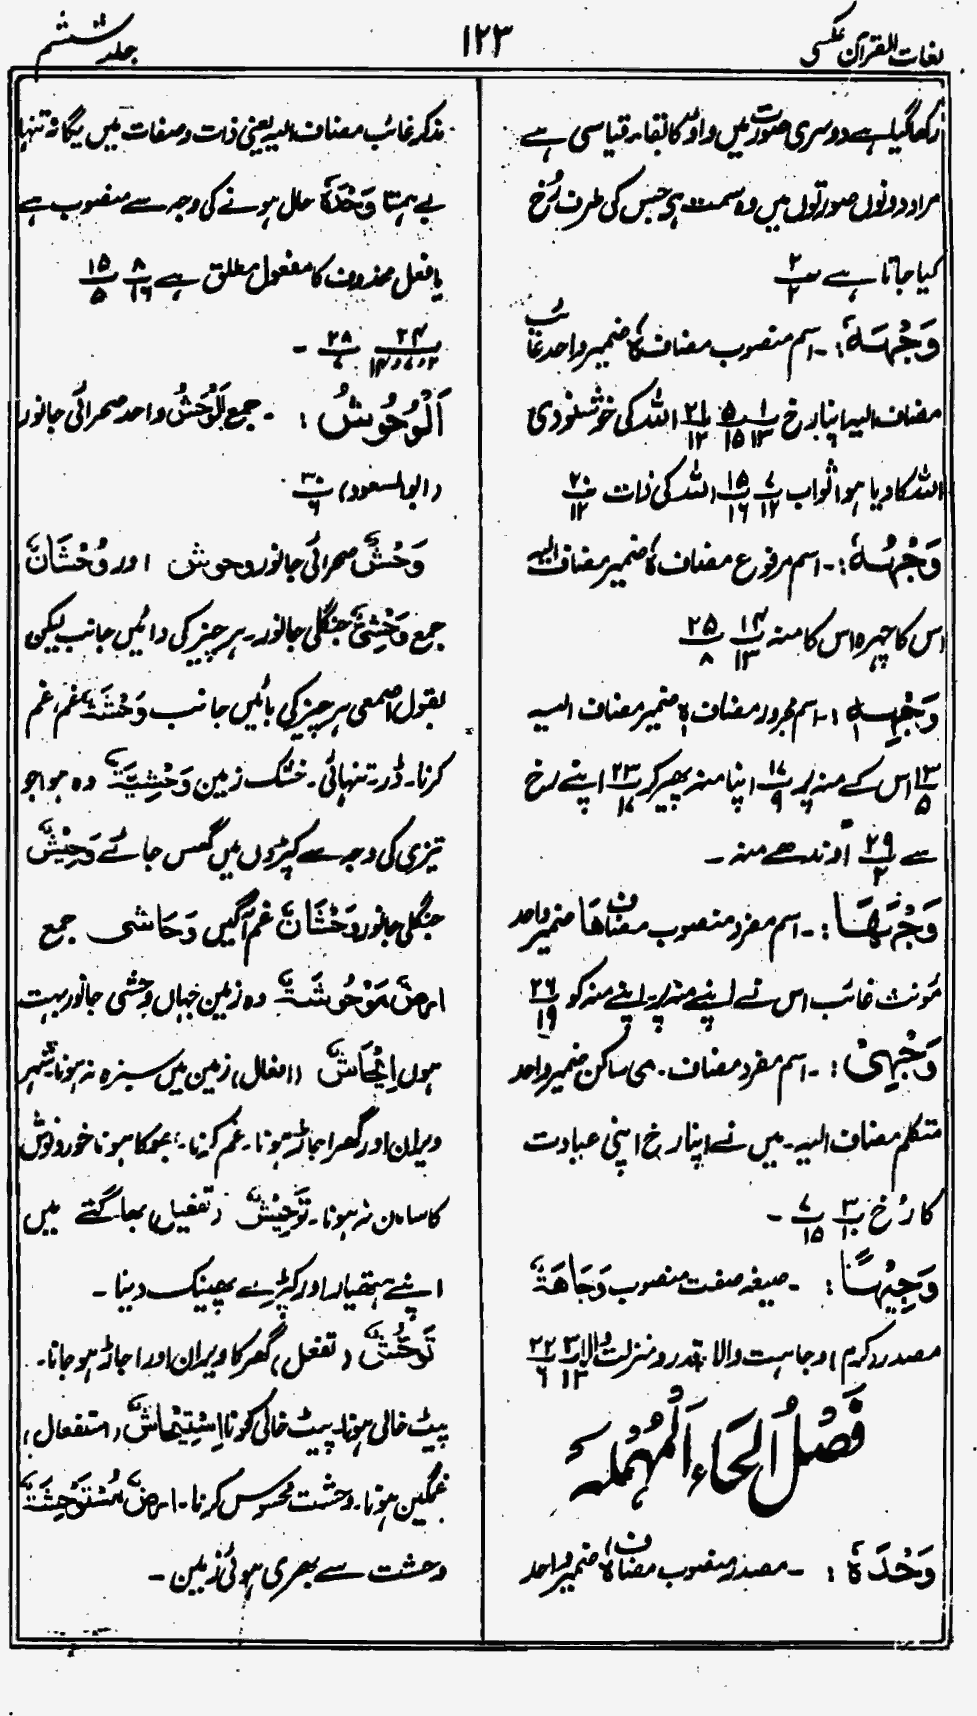 لغات القرآن عکسی
۱۲۳
جلد ششم
رکھا گیا ہے دوسری صورت میں واؤ کا بقاء قیاسی ہے
مراد دونوں صورتوں میں وہ سمت ہی جس کی طرف رُخ
کیا جاتا ہے ۲/۲
وَجْهَهٗ :۔ اسم منصوب مضاف ہٗ ضمیر واحد غائب
مضاف الیہ اپنا رخ ۱/۱۳ ۵/۱۵ ۲۱/۱۲ اللہ کی خوشنودی
اللہ کا دیا ہوا ثواب ۷/۱۲ ۱۵/۱۶ اللہ کی ذات ۲۰/۱۲
وَجْهُهٗ :۔ اسم مرفوع مضاف ہٗ ضمیر مضاف الیہ
اس کا چہرہ اس کا منہ ۱۴/۱۳ ۲۵/۸
وَجْهِهٖ :۔ اسم مجرور مضاف ہٖ ضمیر مضاف الیہ
۱۳/۵ اس کے منہ پر ۱۷/۹ اپنا منہ پھیر کر ۲۳/۱۷ اپنے رخ
سے ۲۹/۲ اوندھے منہ ۔
وَجْهَهَا :۔ اسم مفرد منصوب مضاف هَا ضمیر واحد
مؤنث غائب اس نے اپنے منہ پر۔ اپنے منہ کو ۲۶/۱۹
وَجْهِیَ :۔ اسم مفرد مضاف ۔ ی ساکن ضمیر واحد
متکلم مضاف الیہ ۔ میں نے اپنا رخ اپنی عبادت
کا رُخ ۳/۱۰ ۷/۱۵ ۔
وَجِیْهًا :۔ صیغہ صفت منصوب وَجَاهَةٌ
مصدر (کرم) وجاہت والا قدر و منزلت والا ۳/۱۳ ۲۲/۶
فَصْلُ الْحَاءِ الْمُهْمَلَه
وَحْدَهٗ :۔ مصدر منصوب مضاف ہٗ ضمیر واحد
مذکر غائب مضاف الیہ یعنی ذات و صفات میں یگانہ تنہا
بے ہمتا وَحْدَهٗ حال ہونے کی وجہ سے منصوب ہے
یا فعل محذوف کا مفعول مطلق ہے ۸/۱۶ ۱۵/۵
۲۴/۲،۷،۱۴ ۲۸/۷ ۔
اَلْوُحُوْشُ :۔ جمع اَلْوَحْشُ واحد صحرائی جانور
(ابو السعود) ۳۰/۶
وَحْشٌ صحرائی جانور وحوش اور وُحْشَانٌ
جمع وَحْشِیٌّ جنگلی جانور۔ ہر چیز کی دائیں جانب لیکن
بقول اصمعی ہر چیز کی بائیں جانب وَحْشَةٌ غم، غم
کرنا۔ ڈر۔ تنہائی۔ خشک زمین وَحْشِیَةٌ وہ ہوا جو
تیزی کی وجہ سے کپڑوں میں گھس جائے وَحِیْشٌ
جنگلی جانور وَحْشَانٌ غم آگیں وَحَاشی جمع
ارضٌ مَوْحُوشَةٌ وہ زمین جہاں وحشی جانور بہت
ہوں اِیْحَاشٌ (افعال) زمین میں سبزہ نہ ہونا شہر
ویران اور گھر اجاڑ ہونا۔ غم کرنا۔ بھوکا ہونا خورد نوش
کا سامان نہ ہونا۔ تَوْحِیْشٌ (تفعیل) بھاگتے میں
اپنے ہتھیار اور کپڑے پھینک دینا ۔
تَوَحُّشٌ (تفعل) گھر کا ویران اور اجاڑ ہو جانا۔
پیٹ خالی ہونا۔ پیٹ خالی کرنا اِسْتِیْحَاشٌ (استفعال)
غمگین ہونا۔ وحشت محسوس کرنا۔ ارضٌ مُسْتَوْحِشَةٌ
وحشت سے بھری ہوئی زمین ۔